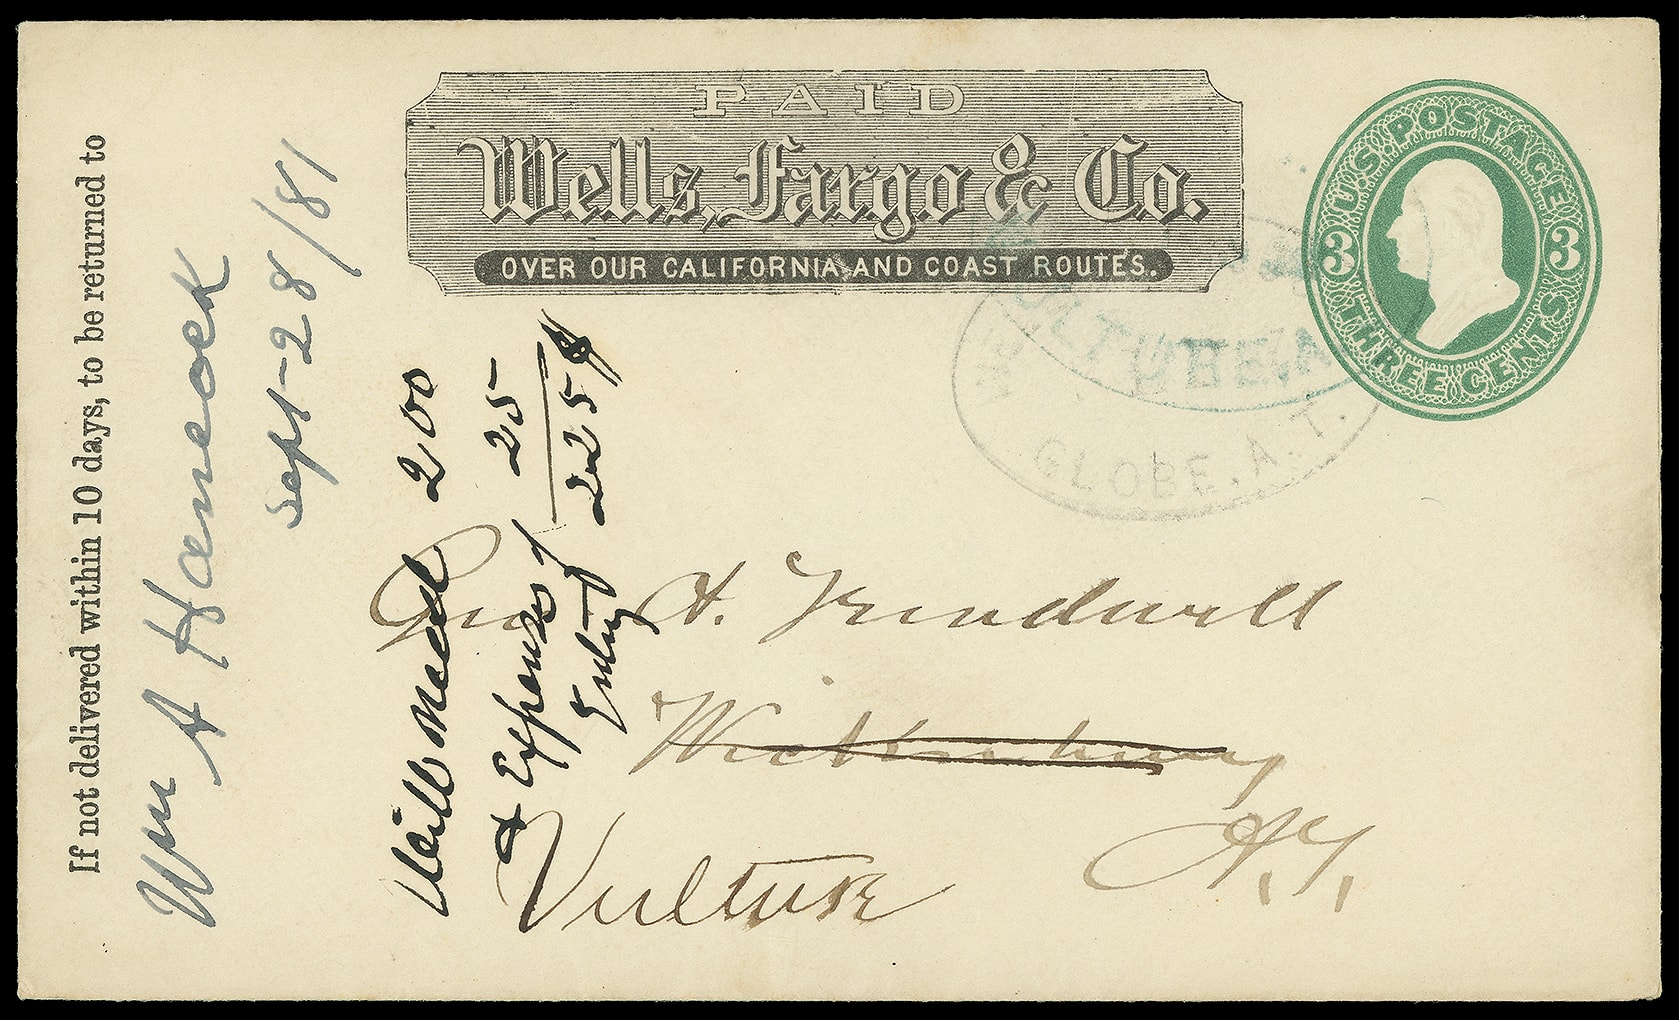 PAID
Wells, Fargo & Co.
OVER OUR CALIFORNIA AND COAST ROUTES.
U.S. POSTAGE
3 3
THREE CENTS
GLOBE. A. T.
If not delivered within 10 days, to be returned to
Wm A Hancock
Sept-28/81
Will Need 200
& Expenses 25
225 $
Geo. A. Treadwell
Wickenburg
Vulture
A.T.